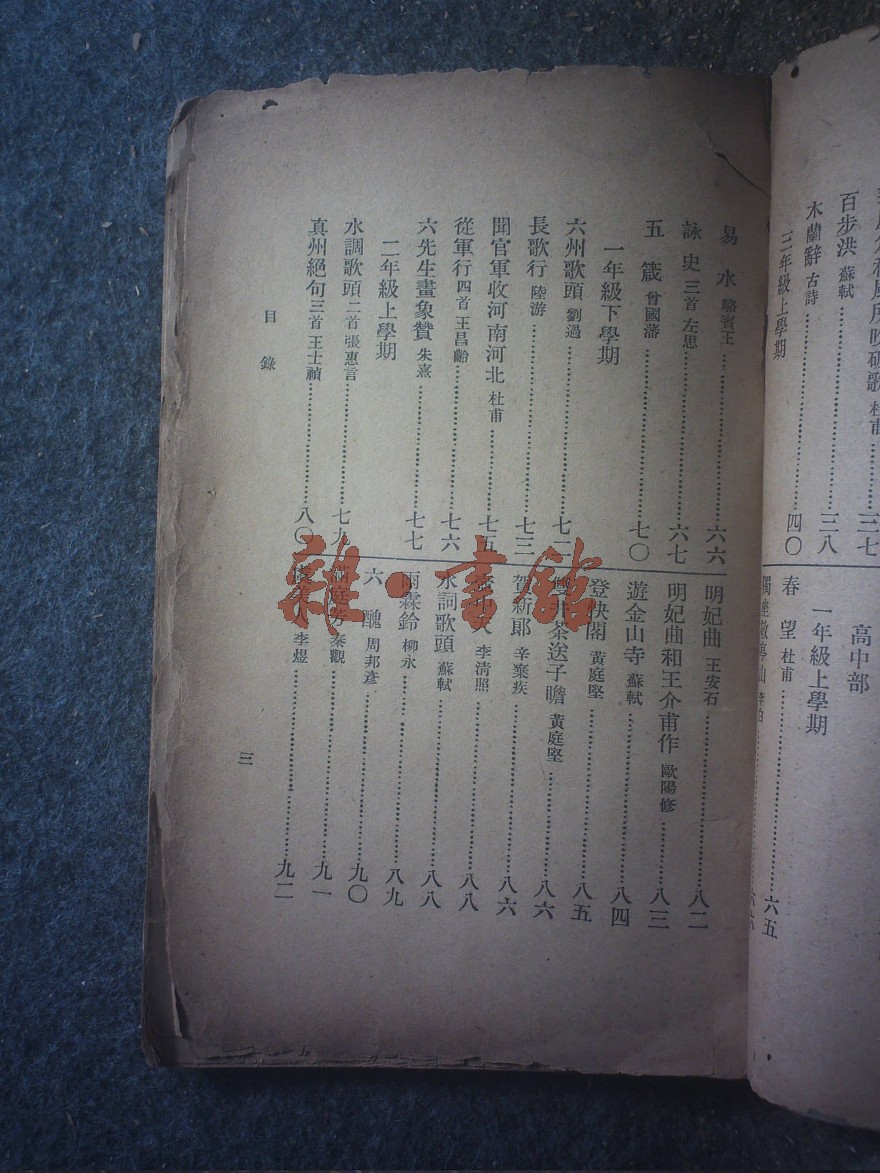 百步洪 蘇軾……三七
木蘭辭 古詩……三八
三年級上學期……四〇
高中部
一年級上學期
春望 杜甫……六五
易水 駱賓王……六六
詠史 三首 左思……六七
五箴 曾國藩……七〇
一年級下學期
六州歌頭 劉過……七二
長歌行 陸游……七三
聞官軍收河南河北 杜甫……七五
從軍行 四首 王昌齡……七六
六先生畫象贊 朱熹……七七
二年級上學期
水調歌頭 二首 張惠言……七九
真州絕句 三首 王士禎……八〇
明妃曲 王安石……八二
明妃曲和王介甫作 歐陽修……八三
遊金山寺 蘇軾……八四
登快閣 黃庭堅……八五
雙井茶送子瞻 黃庭堅……八六
賀新郎 辛棄疾……八六
李清照……八八
水詞歌頭 蘇軾……八八
雨霖鈴 柳永……八九
六醜 周邦彥……九〇
滿庭芳 秦觀……九一
李煜……九二
目錄
三
雜·書館